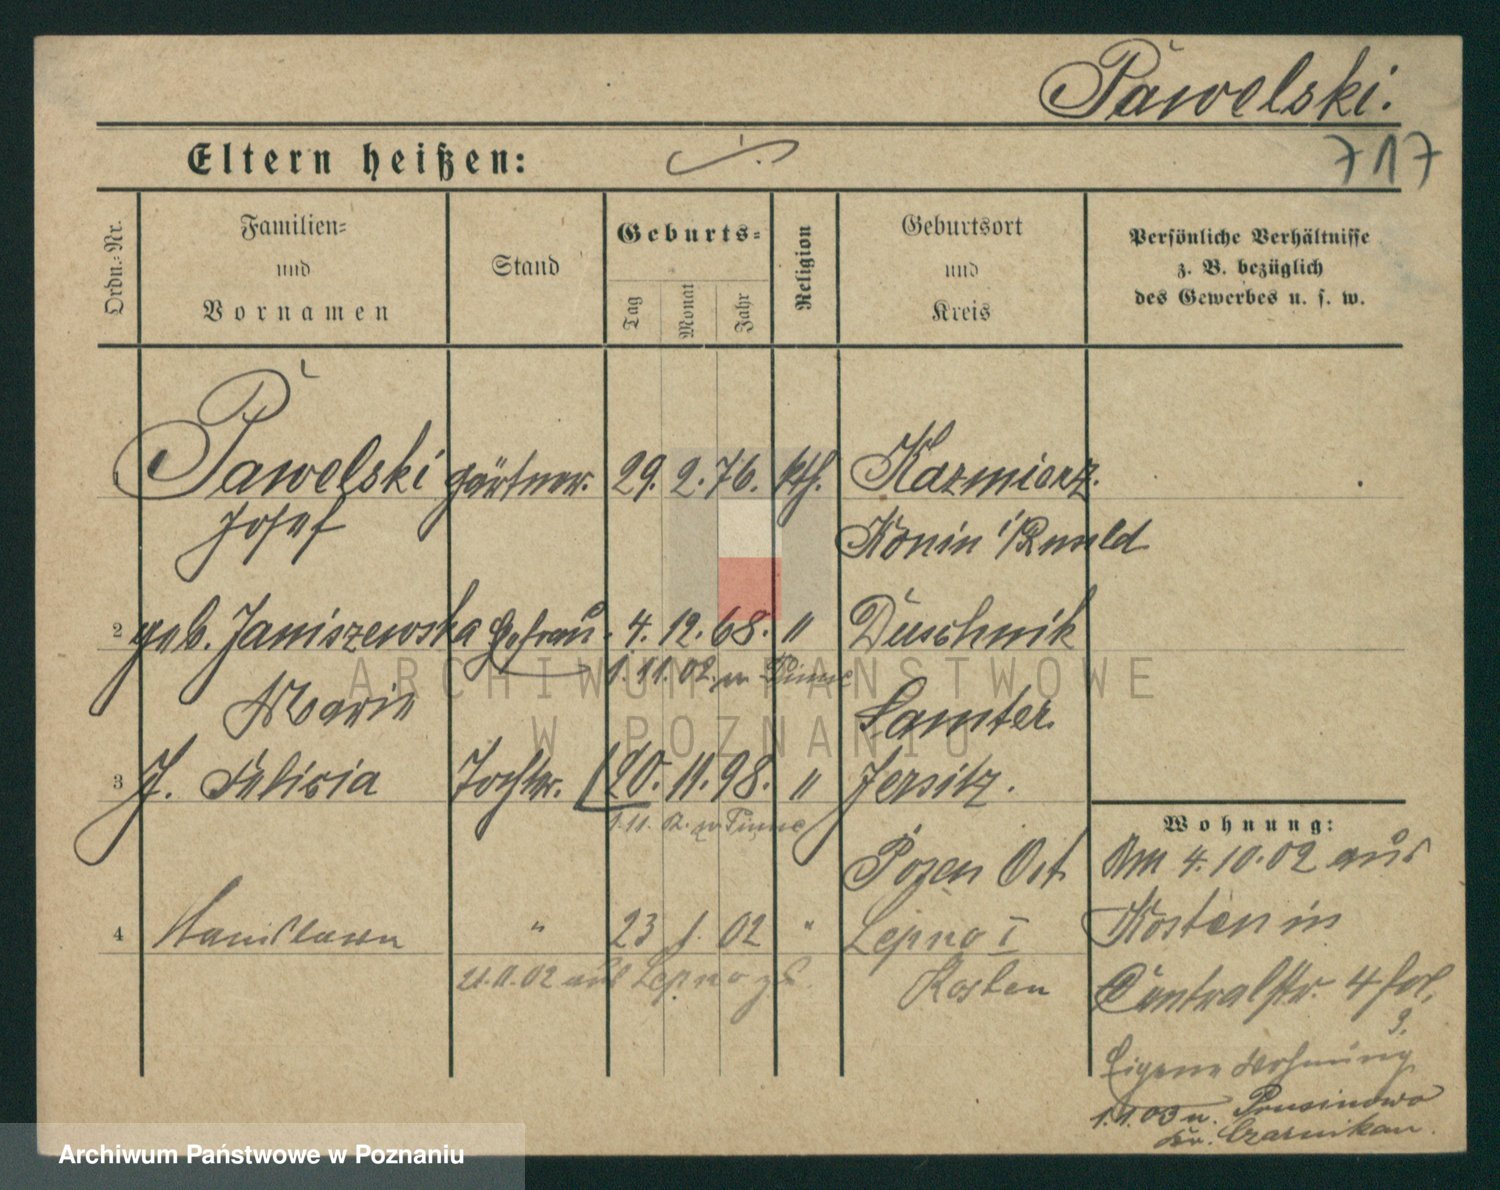 Pawelski.
717
Eltern heißen:
Ordn.-Nr.
Familien-
und
Vornamen
Stand
Geburts-
Tag
Monat
Jahr
Religion
Geburtsort
und
Kreis
Persönliche Verhältnisse
z. B. bezüglich
des Gewerbes u. s. w.
1 Pawelski Gärtner. 29. 2. 76. kth. Kazmierz.
Josef Konin
2 geb. Janiszewska Ehefrau. 4. 12. 68. " Duschnik
1. 11. 02. n. Pinne
Marie Samter.
3 P. Felicia Tochter. 20. 11. 98. " Jersitz.
1. 11. 02. n. Pinne
Posen Ost
4 Stanislawa " 23 1. 02 " Lepno I
21. 11. 02 aus Lepno Kosten
Wohnung:
Am 4. 10. 02 aus
Kosten in
Centralstr. 4
3.
Eigene Wohnung
1. 1. 03 n. Prusinowo
Kr. Czarnikau.
ARCHIWUM PAŃSTWOWE
W POZNANIU
Archiwum Państwowe w Poznaniu